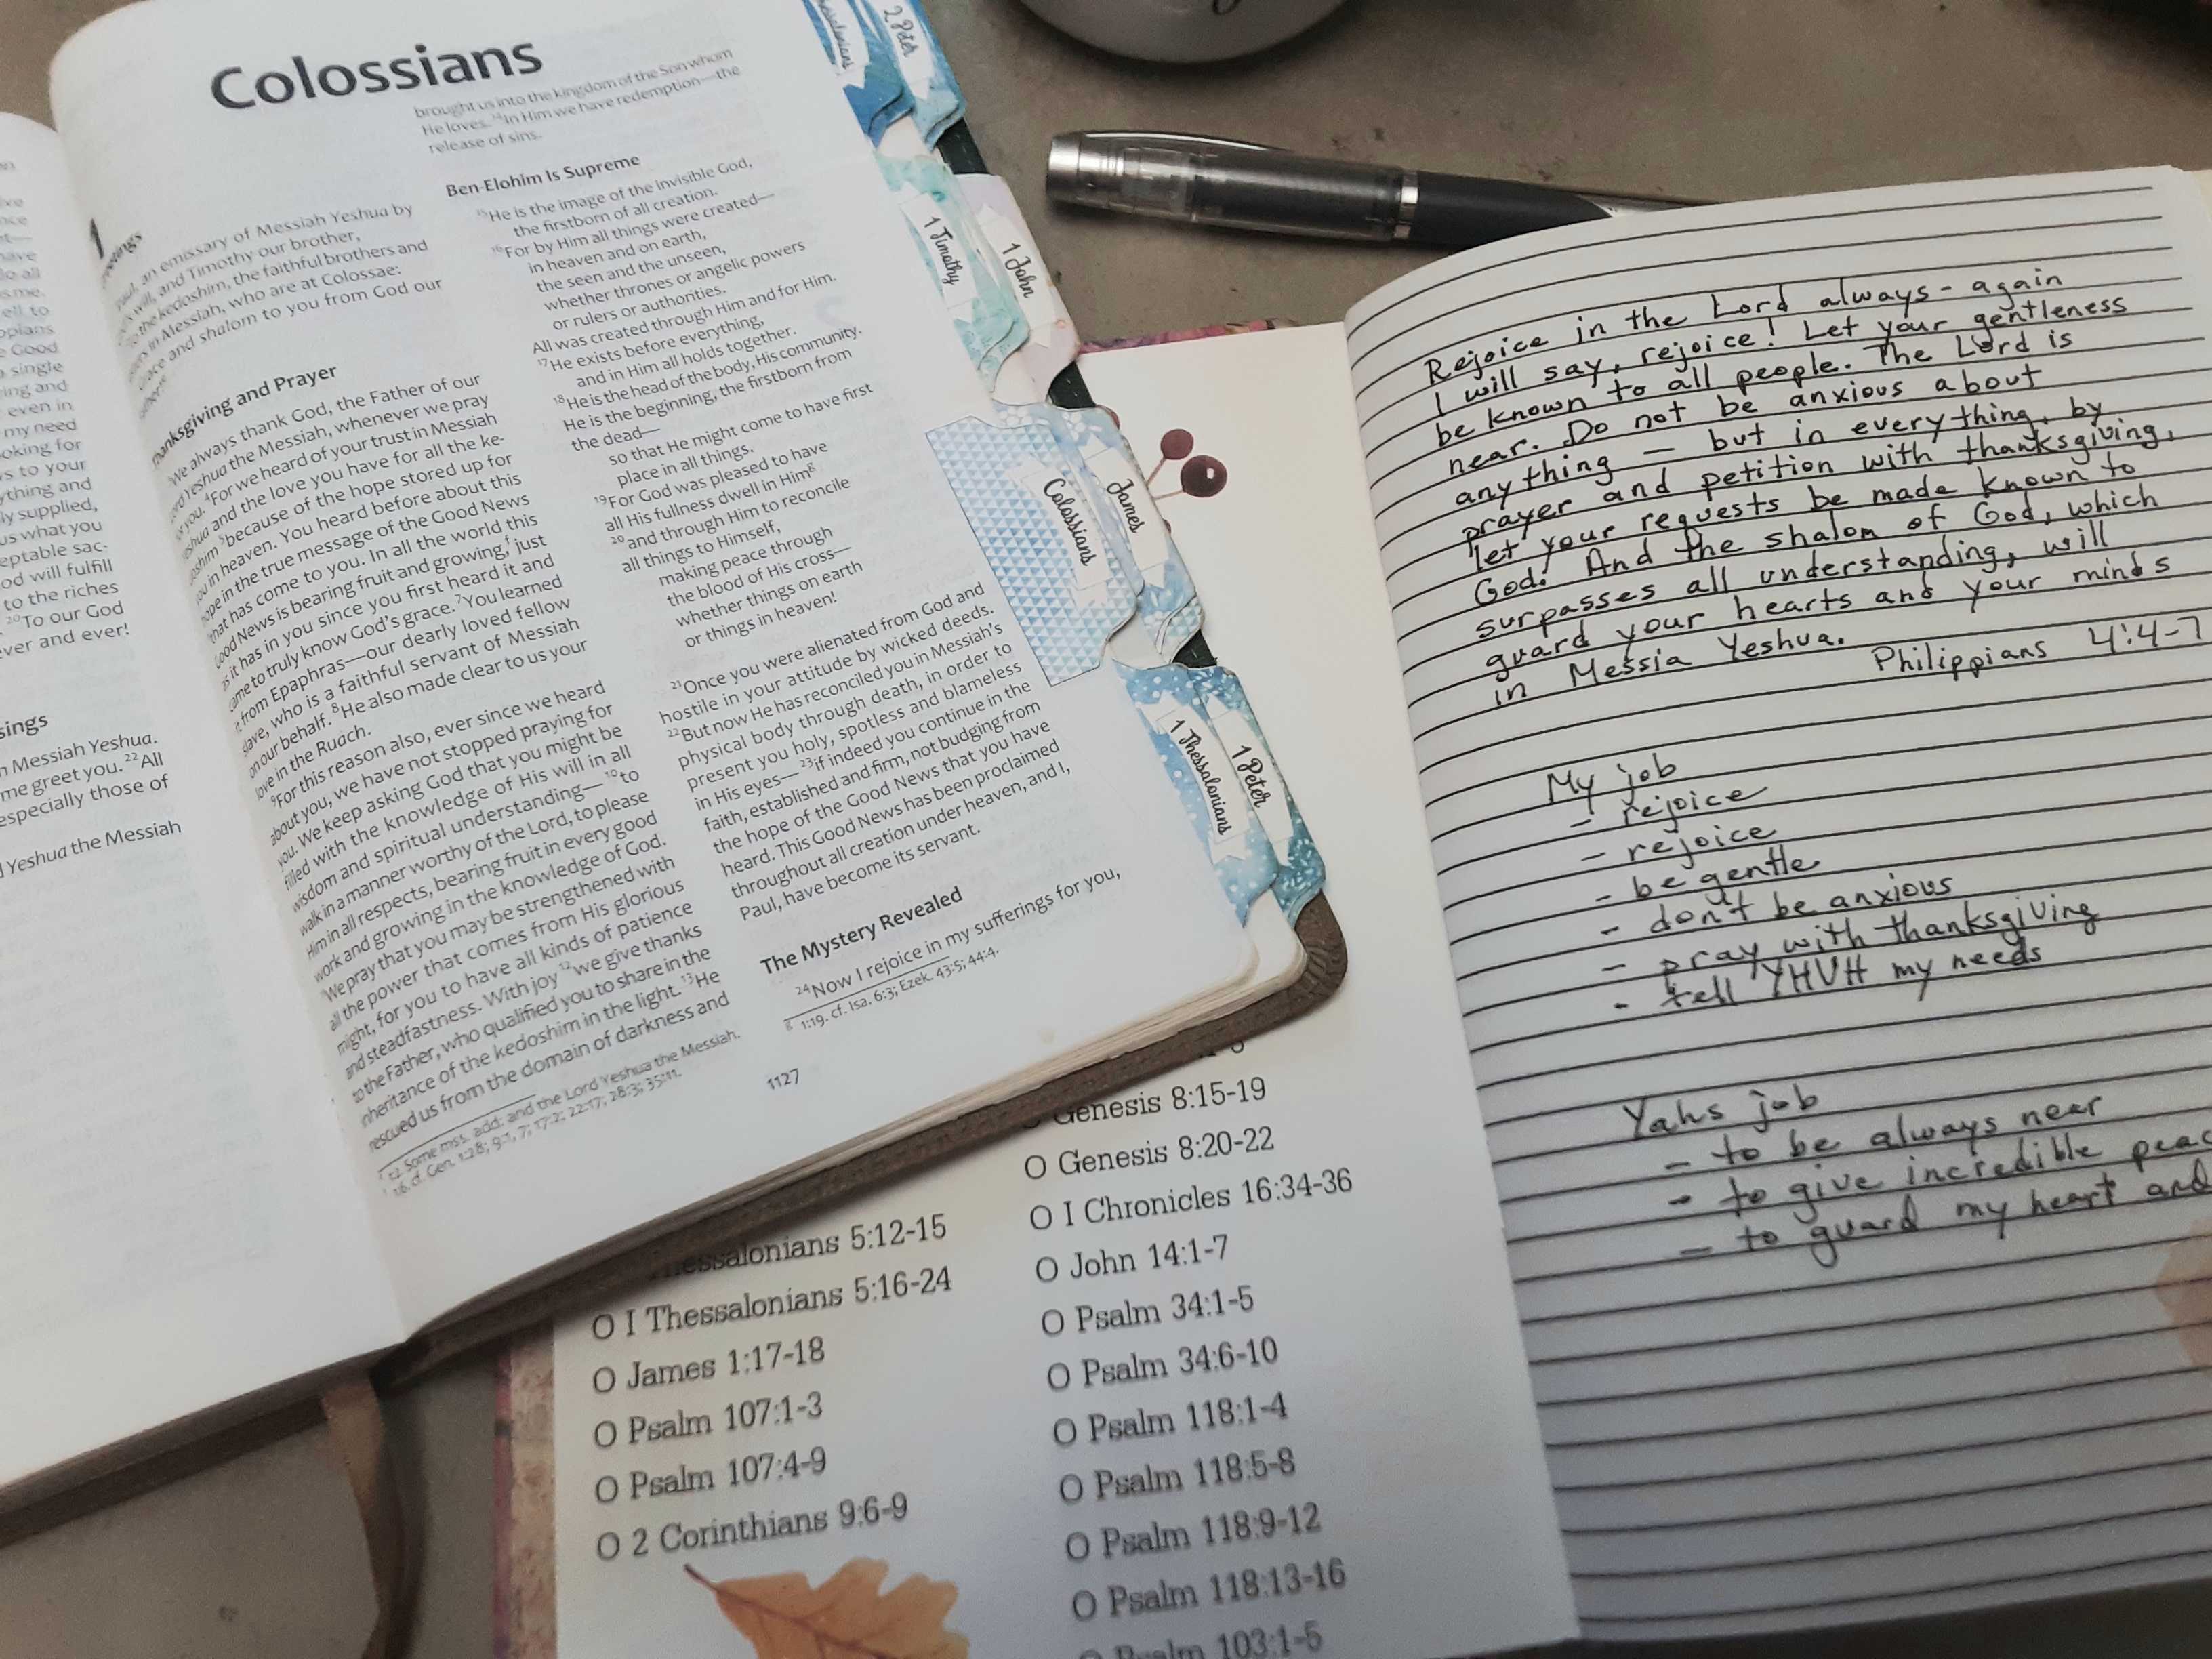 Colossians
brought us into the kingdom of the Son whom
He loves. 14In Him we have redemption—the
release of sins.
Ben-Elohim Is Supreme
15He is the image of the invisible God,
the firstborn of all creation.
16For by Him all things were created—
in heaven and on earth,
the seen and the unseen,
whether thrones or angelic powers
or rulers or authorities.
All was created through Him and for Him.
17He exists before everything,
and in Him all holds together.
18He is the head of the body, His community.
He is the beginning, the firstborn from
the dead—
so that He might come to have first
place in all things.
19For God was pleased to have
all His fullness dwell in Him g
20and through Him to reconcile
all things to Himself,
making peace through
the blood of His cross—
whether things on earth
or things in heaven!
21Once you were alienated from God and
hostile in your attitude by wicked deeds.
22But now He has reconciled you in Messiah's
physical body through death, in order to
present you holy, spotless and blameless
in His eyes— 23if indeed you continue in the
faith, established and firm, not budging from
the hope of the Good News that you have
heard. This Good News has been proclaimed
throughout all creation under heaven, and I,
Paul, have become its servant.
The Mystery Revealed
24Now I rejoice in my sufferings for you,
g 1:19. cf. Isa. 6:3; Ezek. 43:5; 44:4.
1
an emissary of Messiah Yeshua by
will, and Timothy our brother,
to the kedoshim, the faithful brothers and
in Messiah, who are at Colossae:
Grace and shalom to you from God our
Thanksgiving and Prayer
We always thank God, the Father of our
Lord Yeshua the Messiah, whenever we pray
for you. 4For we heard of your trust in Messiah
Yeshua and the love you have for all the ke-
doshim 5because of the hope stored up for
you in heaven. You heard before about this
hope in the true message of the Good News
that has come to you. In all the world this
Good News is bearing fruit and growing,f just
as it has in you since you first heard it and
came to truly know God's grace. 7You learned
it from Epaphras—our dearly loved fellow
slave, who is a faithful servant of Messiah
on our behalf. 8He also made clear to us your
love in the Ruach.
9For this reason also, ever since we heard
about you, we have not stopped praying for
you. We keep asking God that you might be
filled with the knowledge of His will in all
wisdom and spiritual understanding— 10to
walk in a manner worthy of the Lord, to please
Him in all respects, bearing fruit in every good
work and growing in the knowledge of God.
We pray that you may be strengthened with
all the power that comes from His glorious
might, for you to have all kinds of patience
and steadfastness. With joy 12we give thanks
to the Father, who qualified you to share in the
inheritance of the kedoshim in the light. 13He
rescued us from the domain of darkness and
1:2. Some mss. add: and the Lord Yeshua the Messiah.
1:6. cf. Gen. 1:28; 9:1, 7; 17:2; 22:17; 28:3; 35:11.
1127
have
all
ell to
Good
single
ing and
even in
my need
oking for
to your
ything and
ly supplied,
us what you
eptable sac-
od will fulfill
to the riches
20To our God
ver and ever!
sings
Messiah Yeshua.
me greet you. 22All
especially those of
Yeshua the Messiah
2 Peter
1 Timothy
1 John
Colossians
James
1 Thessalonians
1 Peter
5:12-15
O I Thessalonians 5:16-24
O James 1:17-18
O Psalm 107:1-3
O Psalm 107:4-9
O 2 Corinthians 9:6-9
Genesis 8:15-19
O Genesis 8:20-22
O I Chronicles 16:34-36
O John 14:1-7
O Psalm 34:1-5
O Psalm 34:6-10
O Psalm 118:1-4
O Psalm 118:5-8
O Psalm 118:9-12
O Psalm 118:13-16
Psalm 103:1-5
Rejoice in the Lord always - again
I will say, rejoice! Let your gentleness
be known to all people. The Lord is
near. Do not be anxious about
anything — but in everything, by
prayer and petition with thanksgiving,
let your requests be made known to
God. And the shalom of God, which
surpasses all understanding, will
guard your hearts and your minds
in Messia Yeshua.
Philippians 4:4-7
My job
- rejoice
- rejoice
- be gentle
- don't be anxious
- pray with thanksgiving
- tell YHVH my needs
Yahs job
- to be always near
- to give incredible peac
- to guard my heart and